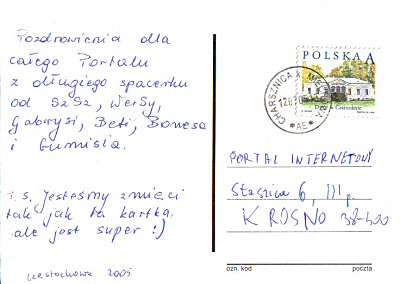 Pozdrowienia dla
całego Portalu
z długiego spacerku
od SzSz, Wersy,
Gabrysi, Beti, Bonesa
i Gumisia.
T.S. Jesteśmy zmięci
tak jak ta kartka,
ale jest super :)
częstochowa 2005
POLSKA A
CHARSZNICA
*AE*
PORTAL INTERNETOWY
Staszica 6, III p.
KROSNO 38-400
ozn. kod
poczta